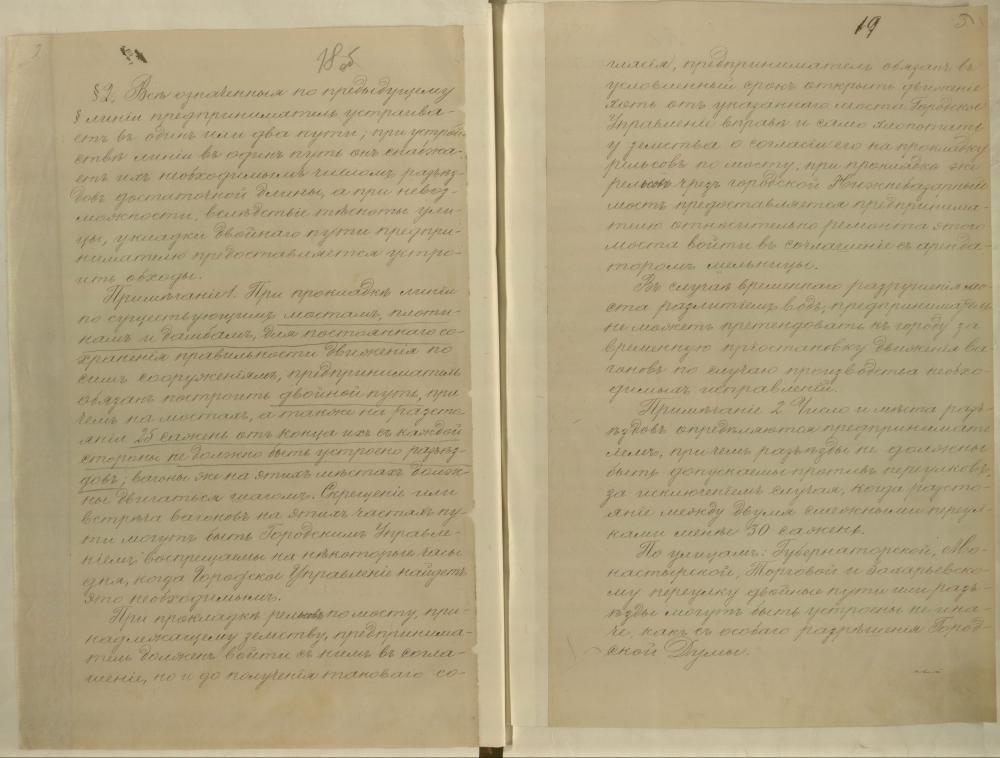 18 об
§2. Всѣ означенныя по предыдущему
§ линіи предприниматель устраива-
етъ въ одинъ или два пути; при устрой-
ствѣ линіи въ одинъ путь онъ снабжа-
етъ ихъ необходимымъ числомъ разъѣз-
довъ достаточной длины, а при невоз-
можности, вслѣдствіе тѣсноты ули-
цы, укладки двойнаго пути предпри-
нимателю предоставляется устро-
ить обходы.
Примѣчаніе 1. При прокладкѣ линіи
по существующимъ мостамъ, плоти-
намъ и дамбамъ, для постояннаго со-
храненія правильности движенія по
симъ сооруженіямъ, предприниматель
обязанъ построить двойной путь, при
чемъ на мостахъ, а также на разсто-
яніи 25 сажень отъ конца ихъ съ каждой
стороны не должно быть устроено разъѣз-
довъ; вагоны же на этихъ мѣстахъ долж-
ны двигаться шагомъ. Скрещеніе или
встрѣча вагоновъ на этихъ частяхъ пу-
ти могутъ быть Городскимъ Управле-
ніемъ воспрещаемы на нѣкоторые часы
дня, когда Городское Управленіе найдетъ
это необходимымъ.
При прокладкѣ рельсовъ по мосту, при-
надлежащему земству, предпринима-
тель долженъ войти съ нимъ въ согла-
шеніе, но и до полученія таковаго со-
19
5
гласія, предприниматель обязанъ въ
условленный срокъ открыть движеніе
хоть отъ указаннаго моста. Городское
Управленіе вправѣ и само хлопотать
у земства о согласіи его на прокладку
рельсовъ по мосту, при прокладкѣ же
рельсовъ чрезъ городской
мостъ предоставляется предпринима-
телю относительно ремонта этого
моста войти въ соглашеніе съ аренда-
торомъ мельницы.
Въ случаѣ временнаго разрушенія мо-
ста разлитіемъ водъ, предприниматель
не можетъ претендовать къ городу за
временную пріостановку движенія ва-
гоновъ по случаю производства необхо-
димыхъ исправленій.
Примѣчаніе 2. Число и мѣста разъ-
ѣздовъ опредѣляются предпринимате-
лемъ, причемъ разъѣзды не должны
быть допускаемы противъ переулковъ,
за исключеніемъ случая, когда разсто-
яніе между двумя смежными переул-
ками менѣе 50 сажень.
По улицамъ: Губернаторской, Мо-
настырской, Торговой и Захарьевско-
му переулку двойные пути или разъ-
ѣзды могутъ быть устроены не ина-
че, какъ съ особаго разрѣшенія Город-
ской Думы.